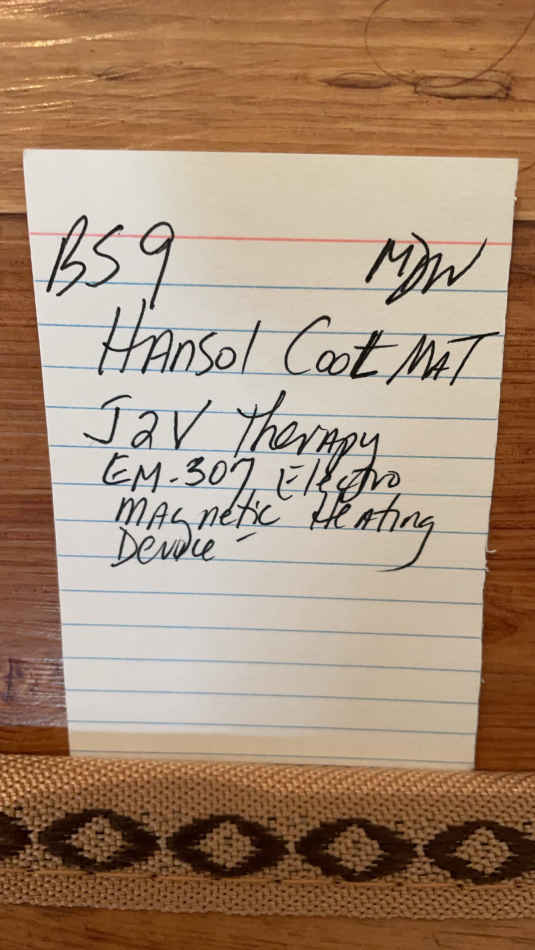 BS9 MDW
HAnsol Cool MAT
J2V Therapy
EM-307 Electro
MAgnetic HeAting
Device